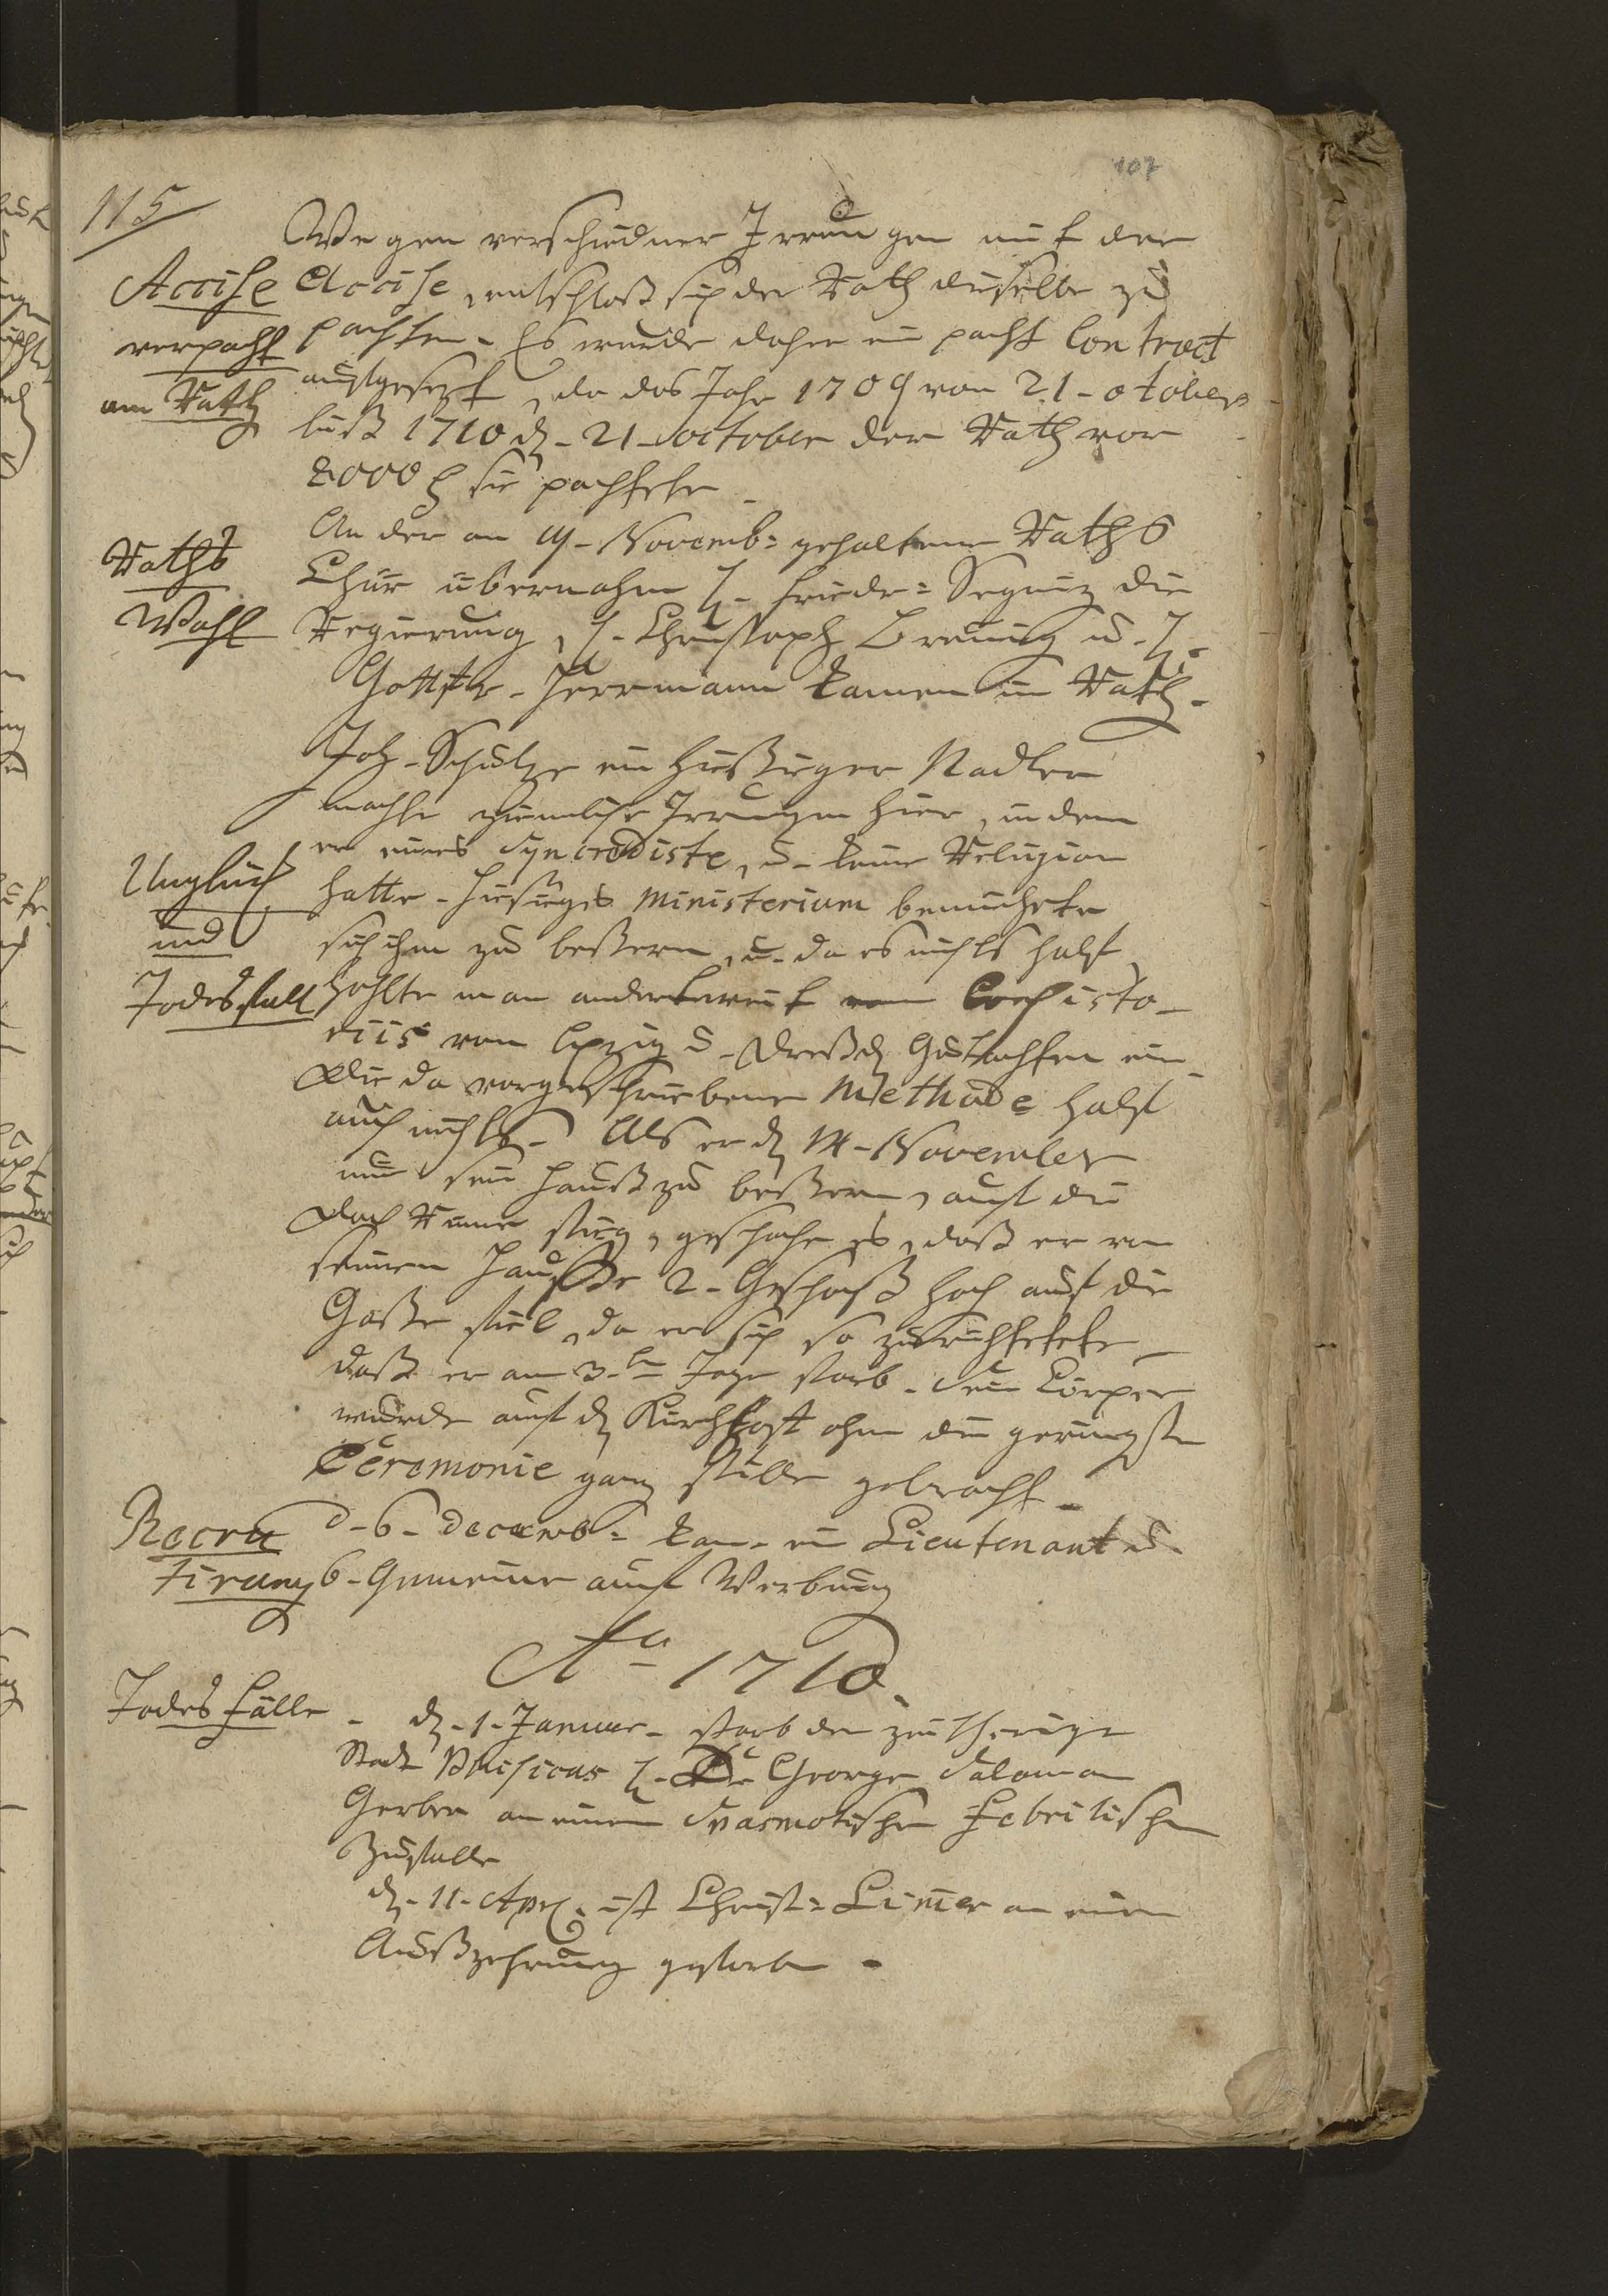 107
115
Wegen verschiedner Irrungen mit der
Accise Accise, entschloß sich der Rath dieselbe zu
verpacht pachten. Es wurde daher ein pacht Contract
am Rath aufgesezt, da das Jahr 1709 von 21. october
biß 1710 d. 21. october der Rath vor
sie pachtete.
An der am Novemb: gehaltenen Raths
Raths Chur übernahm H. Friedr: Seguiz die
Wahl Regierung, H. Christoph Breunig u. H.
Gottfr. Herrmann kamen in Rath.
Joh. Schulze ein hießiger Nadler
machte ziemliche Irrungen hier, indem
er eines Syncrediste, u. keine Religion
Unglück hatte. hiesiges Ministerium bemühete
und sich ihn zu beßern, u. da es nichts half
Todesfall hohlte man anderweit von Consisto-
riis von Lpzig u. Dreßd. Gutachten ein.
Die da vorgeschriebene Methode half
auch nichts. Als er d. 14. November
nun sein Hauß zu beßern, auf die
Dach Rinne stieg, geschahe es, daß er von
seinem Hauße 2. Geschoß hoch auf die
Gaße fiel, da er sich so zurichtete
daß er am 3.ten Tage starb. Sein Cörper
wurde auf d. Kirchhoff ohne die geringste
Ceremonie ganz stille gebracht.
Recru d. 6. decemb: kam ein Lieutenant u.
tirung 6. Gemeine auf Werbung
Ao 1710.
Todes Fälle d. 1. Januar. starb der zeitherige
Stadt Phisicus H. D. George Salomon
Gerber an einem Spasmotischen Febrilischen
Zufalle
d. 11. Apr. ist Christ: Limer an einer
Außzehrung gestorben.